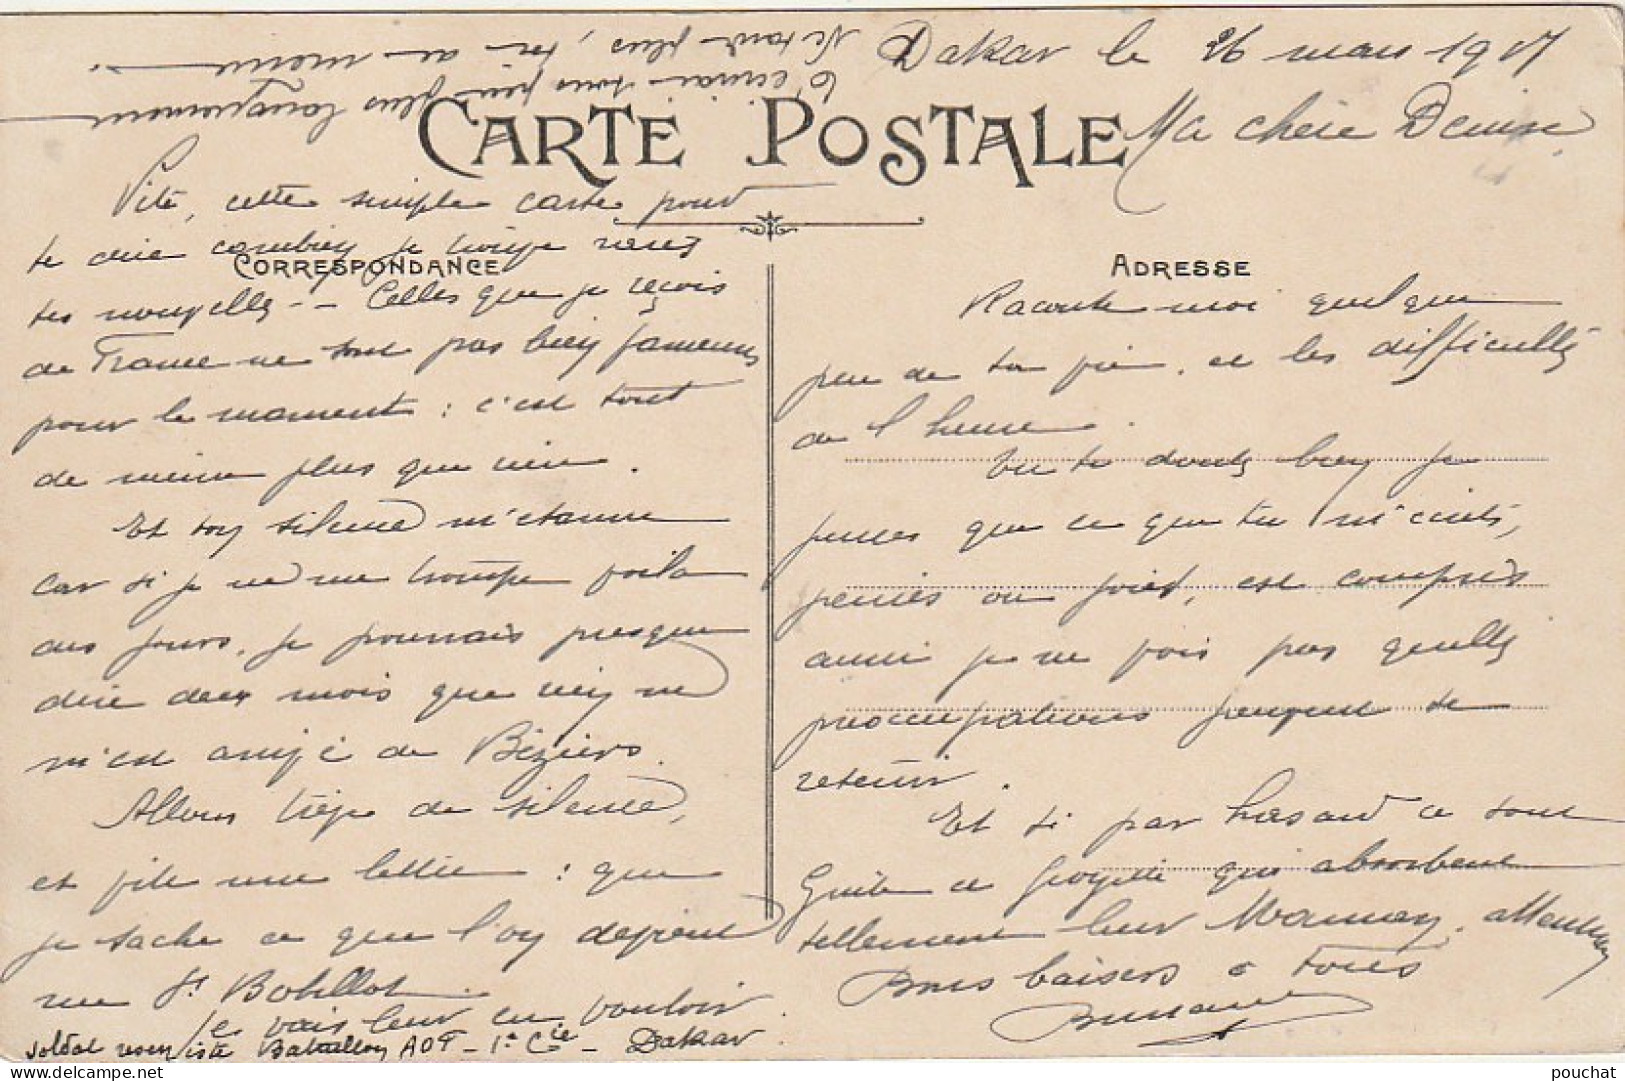 Dakar le 26 mars 1917
Ma chère Denise
CARTE POSTALE
CORRESPONDANCE
Vite, cette simple carte pour
te dire combien je trouve rares
tes nouvelles -- Celles que je reçois
de France ne sont pas bien fameuses
pour le moment : c'est tout
de même plus que rien.
Et ton silence m'étonne
car si je ne me trompe voilà
des jours, je pourrais presque
dire deux mois que rien ne
m'est arrivé de Béziers.
Allons trêve de silence,
et file une lettre : que
je sache ce que l'on devient
rue
je vais leur en vouloir
soldat réserviste Bataillon AOF - 1e Cie - Dakar
ADRESSE
Raconte moi quelque
peu de ta vie, et les difficultés
de l'heure.
Tu te doutes bien je
penses que ce que tu m'écrits,
peines ou joies, est compris
aussi je ne vois pas quelles
préoccupations peuvent te
retenir.
Et si par hasard ce sont
Guite et qui absorbent
tellement leur Maman, attention
Bons baisers à tous
t'écrirai sous peu plus longuement
Ne tarde plus, toi de même.
pouchat